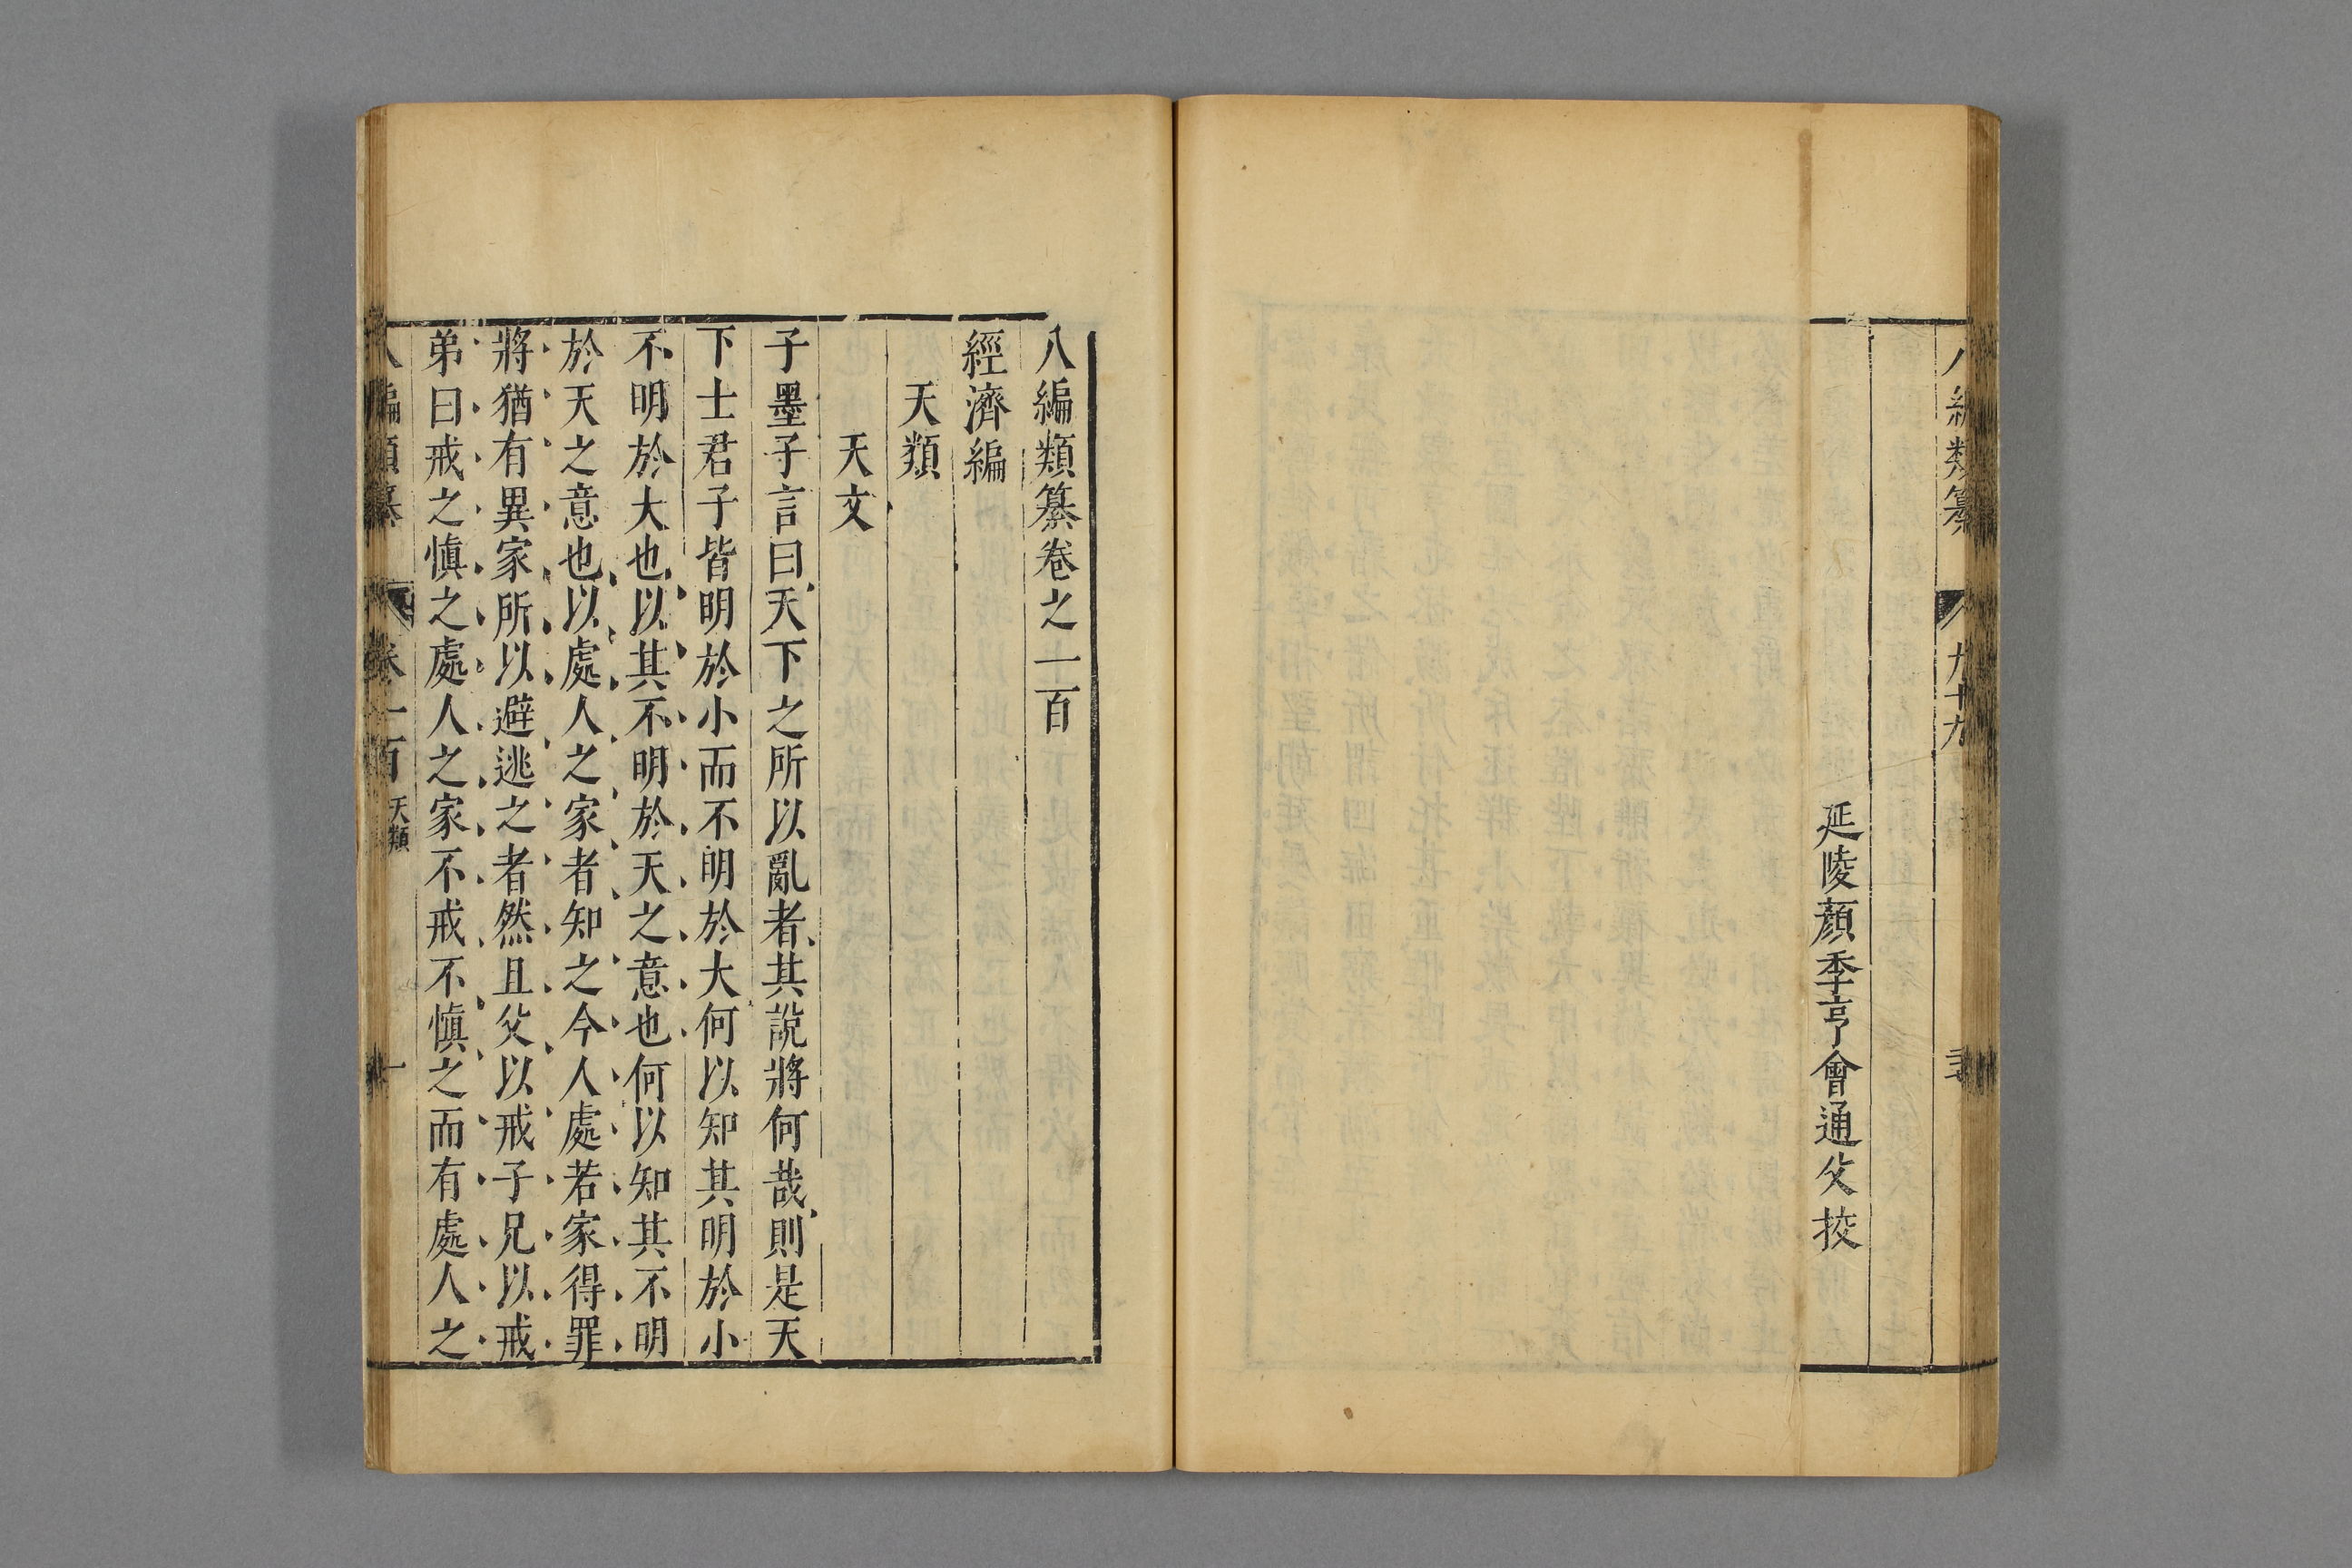 八編類纂
九十九
延陵顏季亨會通父挍
八編類纂卷之一百
經濟編
天類
天文
子墨子言曰天下之所以亂者其說將何哉則是天
下士君子皆明於小而不明於大何以知其明於小
不明於大也以其不明於天之意也何以知其不明
於天之意也以處人之家者知之今人處若家得罪
將猶有異家所以避逃之者然且父以戒子兄以戒
弟曰戒之慎之處人之家不戒不慎之而有處人之
八編類纂
卷一百
天類
一